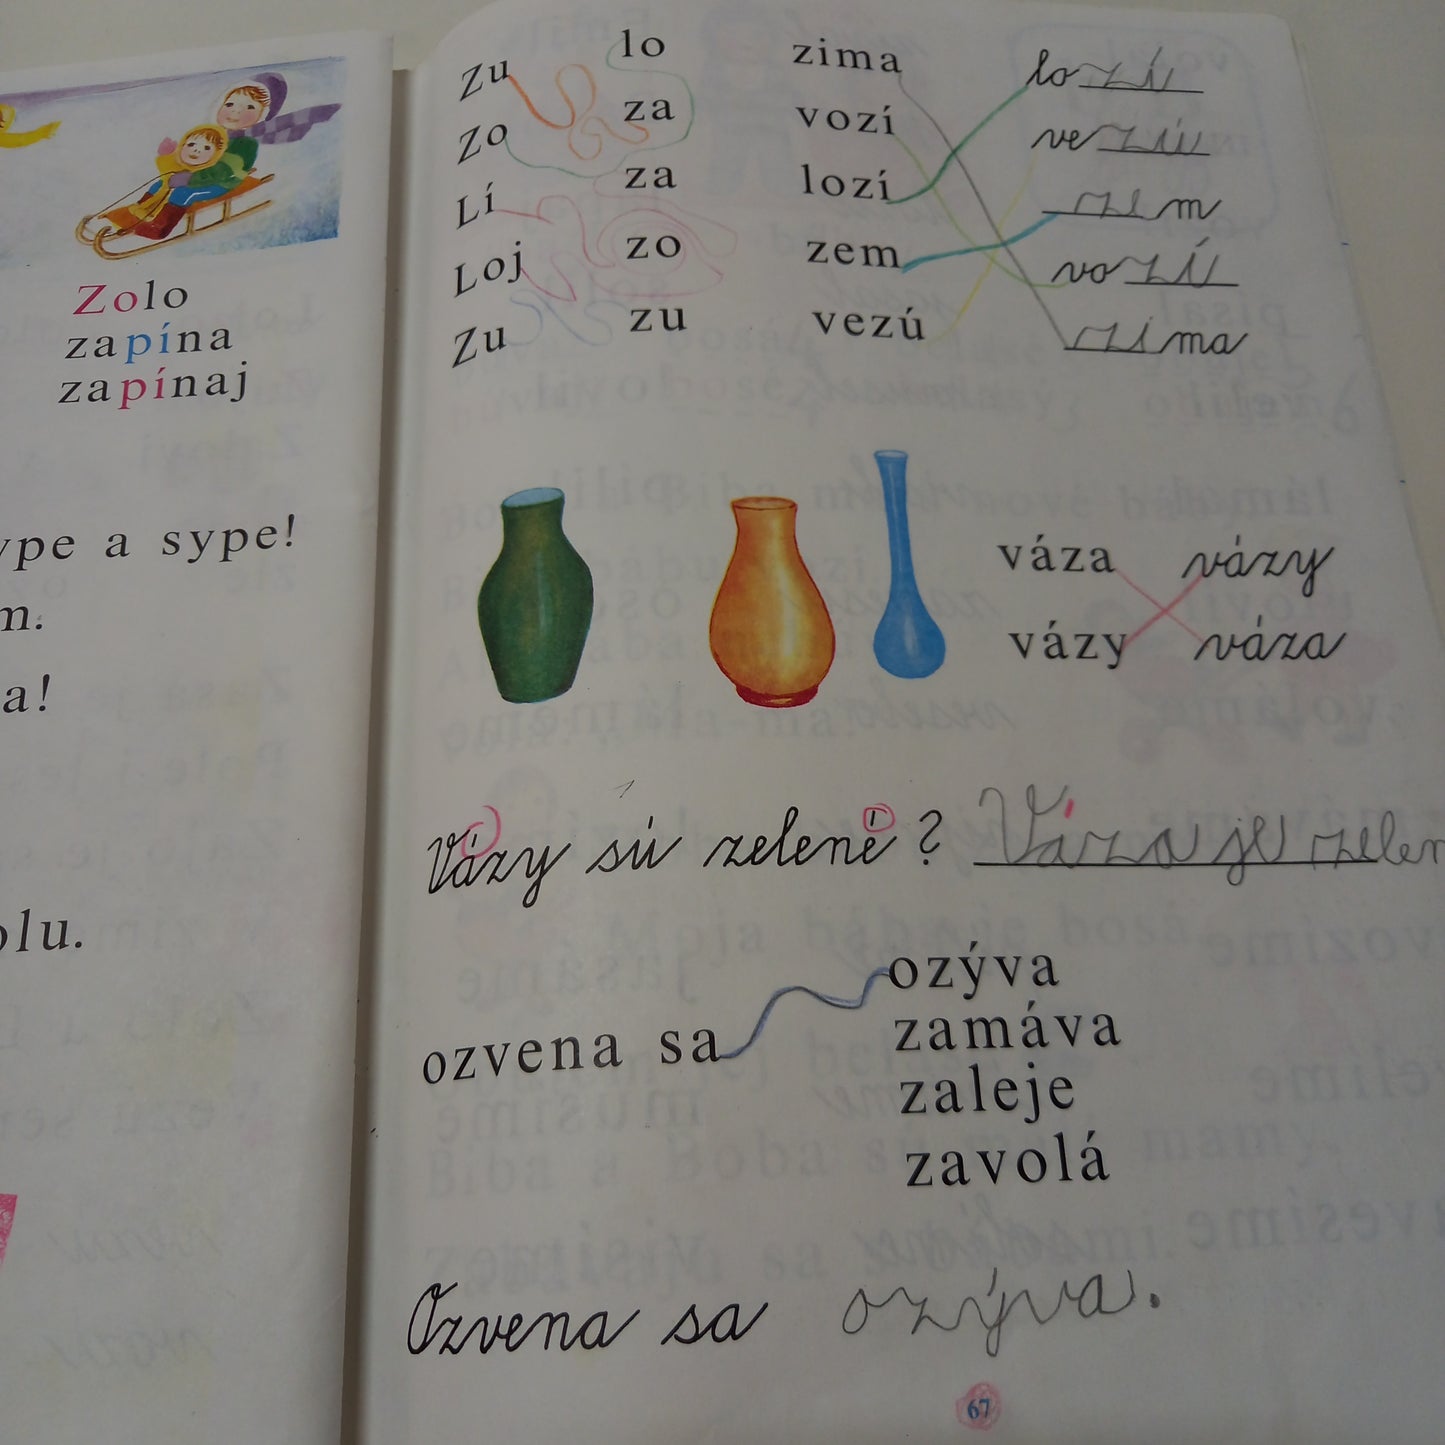 Zolo
zapína
zapínaj
ype a sype!
m.
a!
olu.
Zu lo zima lozí
Zo za vozí vezú
Lí za lozí zem
Loj zo zem vozí
Zu zu vezú zima
váza vázy
vázy váza
Vázy sú zelené? Váza je zelen
ozvena sa
ozýva
zamáva
zaleje
zavolá
Ozvena sa ozýva.
67